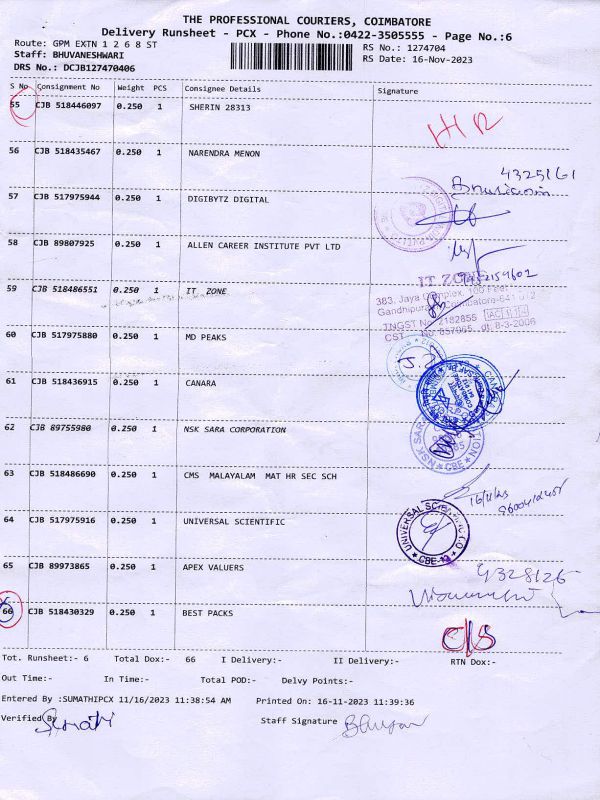 THE PROFESSIONAL COURIERS, COIMBATORE
Delivery Runsheet - PCX - Phone No.:0422-3505555 - Page No.:6
Route: GPM EXTN 1 2 6 8 ST RS No.: 1274704
Staff: BHUVANESHWARI RS Date: 16-Nov-2023
DRS No.: DCJB127470406
S No Consignment No Weight PCS Consignee Details Signature
55 CJB 518446097 0.250 1 SHERIN 28313
56 CJB 518435467 0.250 1 NARENDRA MENON
4325161
57 CJB 517975944 0.250 1 DIGIBYTZ DIGITAL
58 CJB 89807925 0.250 1 ALLEN CAREER INSTITUTE PVT LTD
59 CJB 518486551 0.250 1 IT ZONE
IT ZONE
383, Jaya Complex, 100 Feet
Gandhipuram, Coimbatore-641 012
TNGST No. 2182855
CST No. 857065, dt. 8-3-2006
60 CJB 517975880 0.250 1 MD PEAKS
61 CJB 518436915 0.250 1 CANARA
62 CJB 89755980 0.250 1 NSK SARA CORPORATION
NSK SARA CORPORATION CBE
63 CJB 518486690 0.250 1 CMS MALAYALAM MAT HR SEC SCH
16/11/23
64 CJB 517975916 0.250 1 UNIVERSAL SCIENTIFIC
UNIVERSAL SCIENTIFIC CO CBE-12
65 CJB 89973865 0.250 1 APEX VALUERS
9328126
66 CJB 518430329 0.250 1 BEST PACKS
C/S
Tot. Runsheet:- 6 Total Dox:- 66 I Delivery:- II Delivery:- RTN Dox:-
Out Time:- In Time:- Total POD:- Delvy Points:-
Entered By :SUMATHIPCX 11/16/2023 11:38:54 AM Printed On: 16-11-2023 11:39:36
Verified By Staff Signature